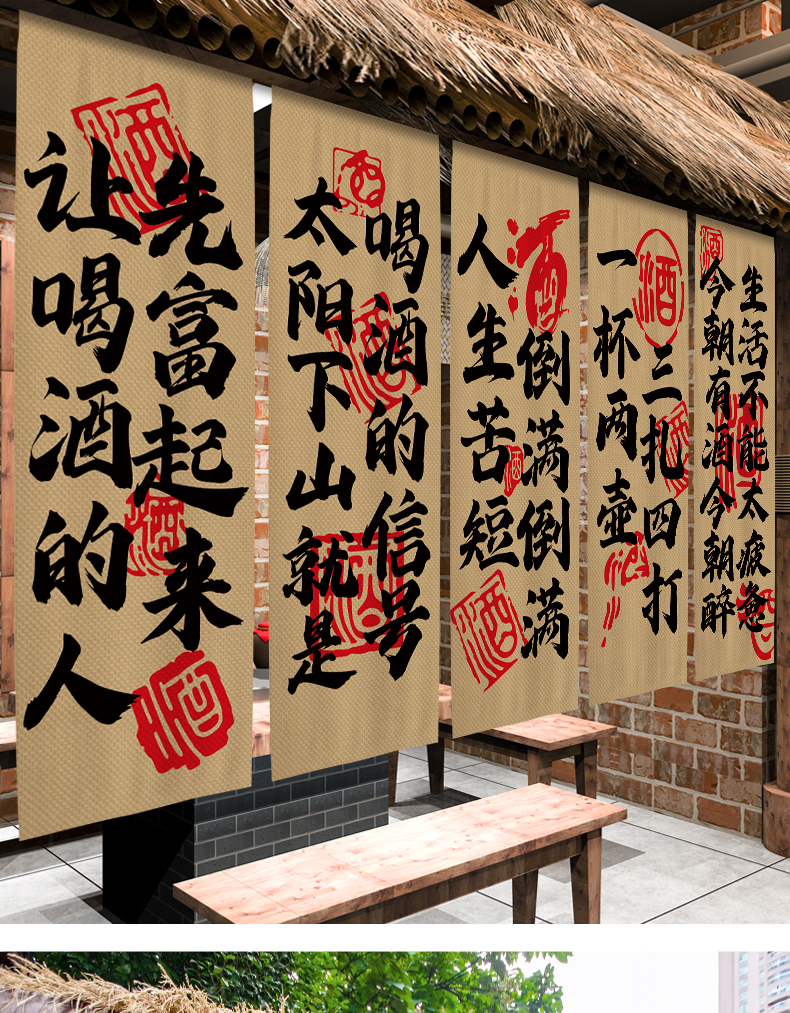 酒
让喝酒的人
先富起来
酒
太阳下山就是
喝酒的信号
酒
人生苦短
倒满倒满
酒
酒
一杯两壶
三扎四打
今朝有酒今朝醉
生活不能太疲惫